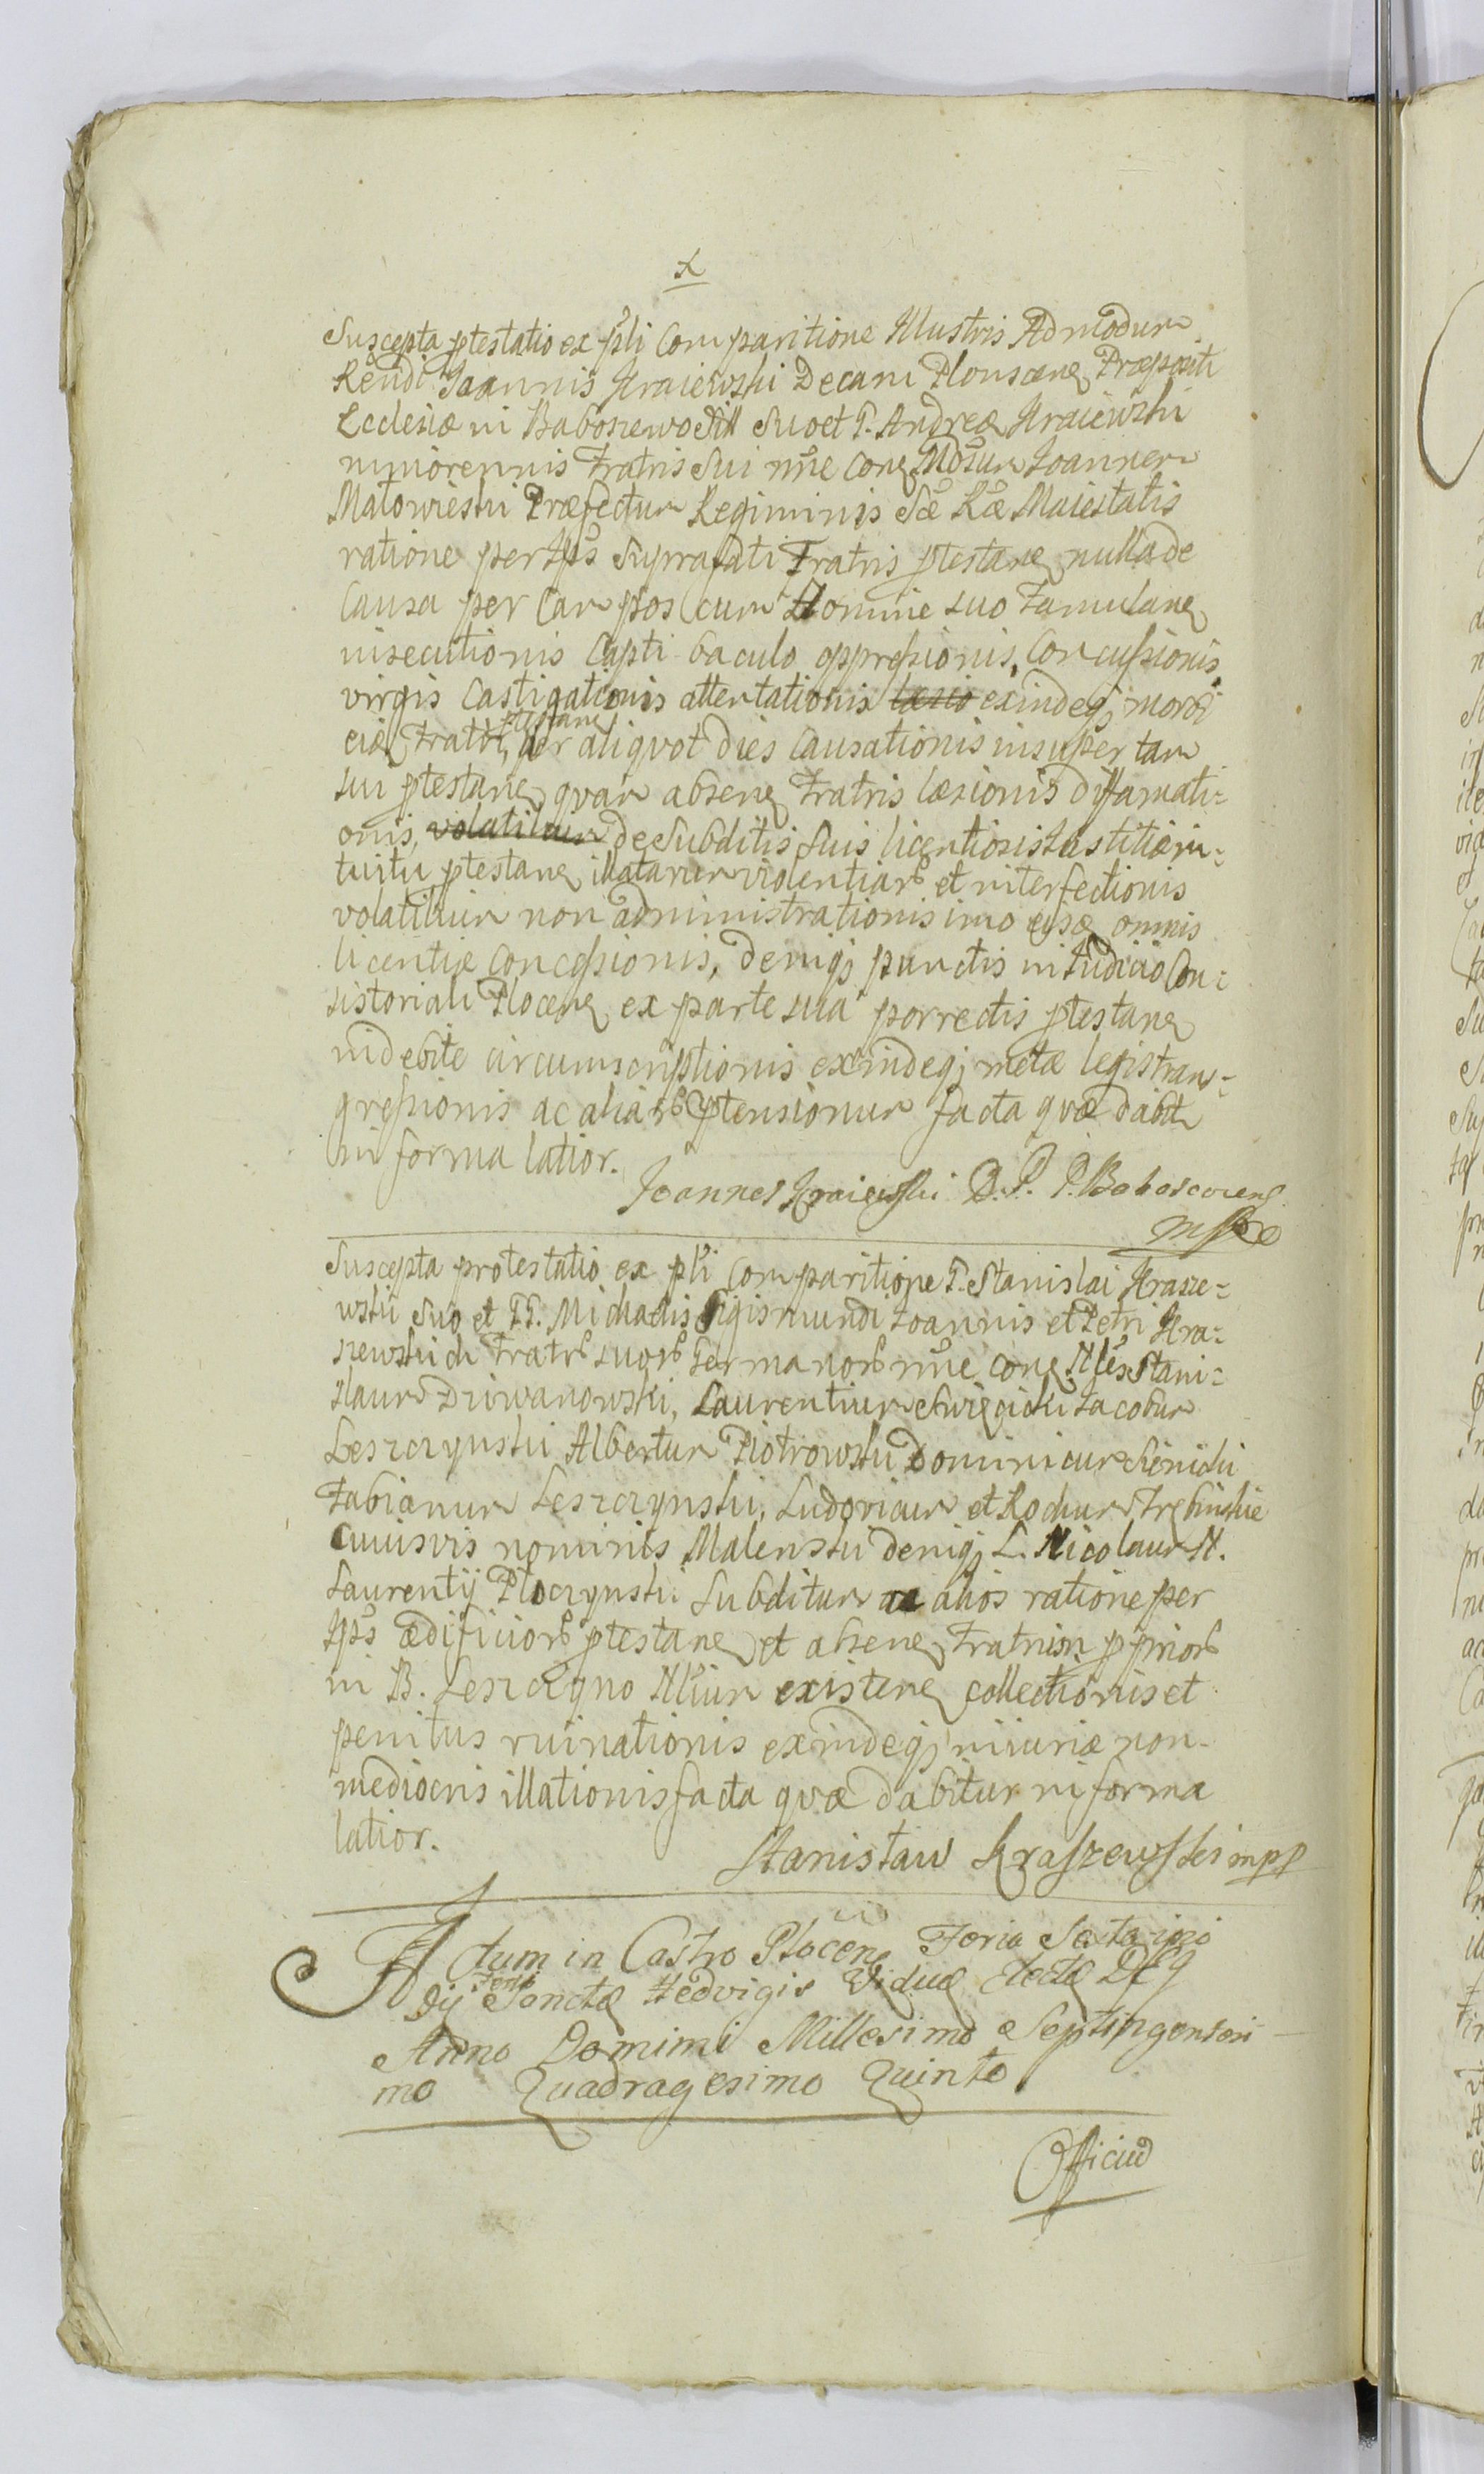 Suscepta ptestatio ex pńli Comparitione Illustris Admodum
Rĕndi Joannis Kraiewski Decani Plonscen Præpositi
Ecclesiæ in Baboszewo suo et P. Andreæ Kraiewski
minorennis Fratris Sui nňe con Joannem
Præfectum Regiminis Sæ Ræ Maiestatis
ratione per Ips Suprafati Fratris ptestan nulla de
Causa per Campos cum Homine suo Famulan
insecutionis Capti baculo oppressionis, Concussionis,
virgis Castigationis attentationis læsio exindeq morbi
eiq Fratri, ptestane per aliquot dies Causationis insuper tam
sui ptestane, quam absene Fratris læsionis diffamati=
onis, volatilium de Subditis suis licentiosis Iustitiæ in=
tuitu ptestane illatarum violentiar et interfectionis
volatilium non administrationis imo eisdæ omnis
licentiæ concessionis, deniq punctis in Iudicio Con=
sistoriali Plocen ex parte sua porrectis ptestane
indebite circumscriptionis exindeq metæ legis trans=
gressionis ac aliar ptensionum facta quæ dabit
in forma latior.
Joannes Kraiewski D. P. P. Baboscoviens
mppa
Suscepta protestatio ex pńli Comparitione P. Stanislai Krasze=
wski Suo et PP. Michaelis Sigismundi Joannis et Petri Kra=
szewskich Fratr suor Germanor nňe con Stani=
slaum Dziwanowski, Laurentium Święcicki Jacobum
Leszczynski Albertum Piotrowski Dominicum
Fabianum Leszczynski, Ludovicum et Rochum Trębinskie
Cuiusvis nominis Malenski deniq L. Nicolaum N.
Laurentij Ploczynski Subditum ac alios ratione per
Ips ædificior ptestane et absene Fratrum pprior
in B. Leszczyno existene collectionis et
penitus ruinationis exindeq iniuriæ non
mediocris illationis facta quæ dabitur in forma
latior.
Stanisław Kraszewski mpp
Actum in Castro Plocen Feria Sexta ipso
Dij Festo Sanctæ Hedvigis Viduæ Electæ
Anno Domini Millesimo Septingentesi
mo Quadragesimo Quinto
Officiu